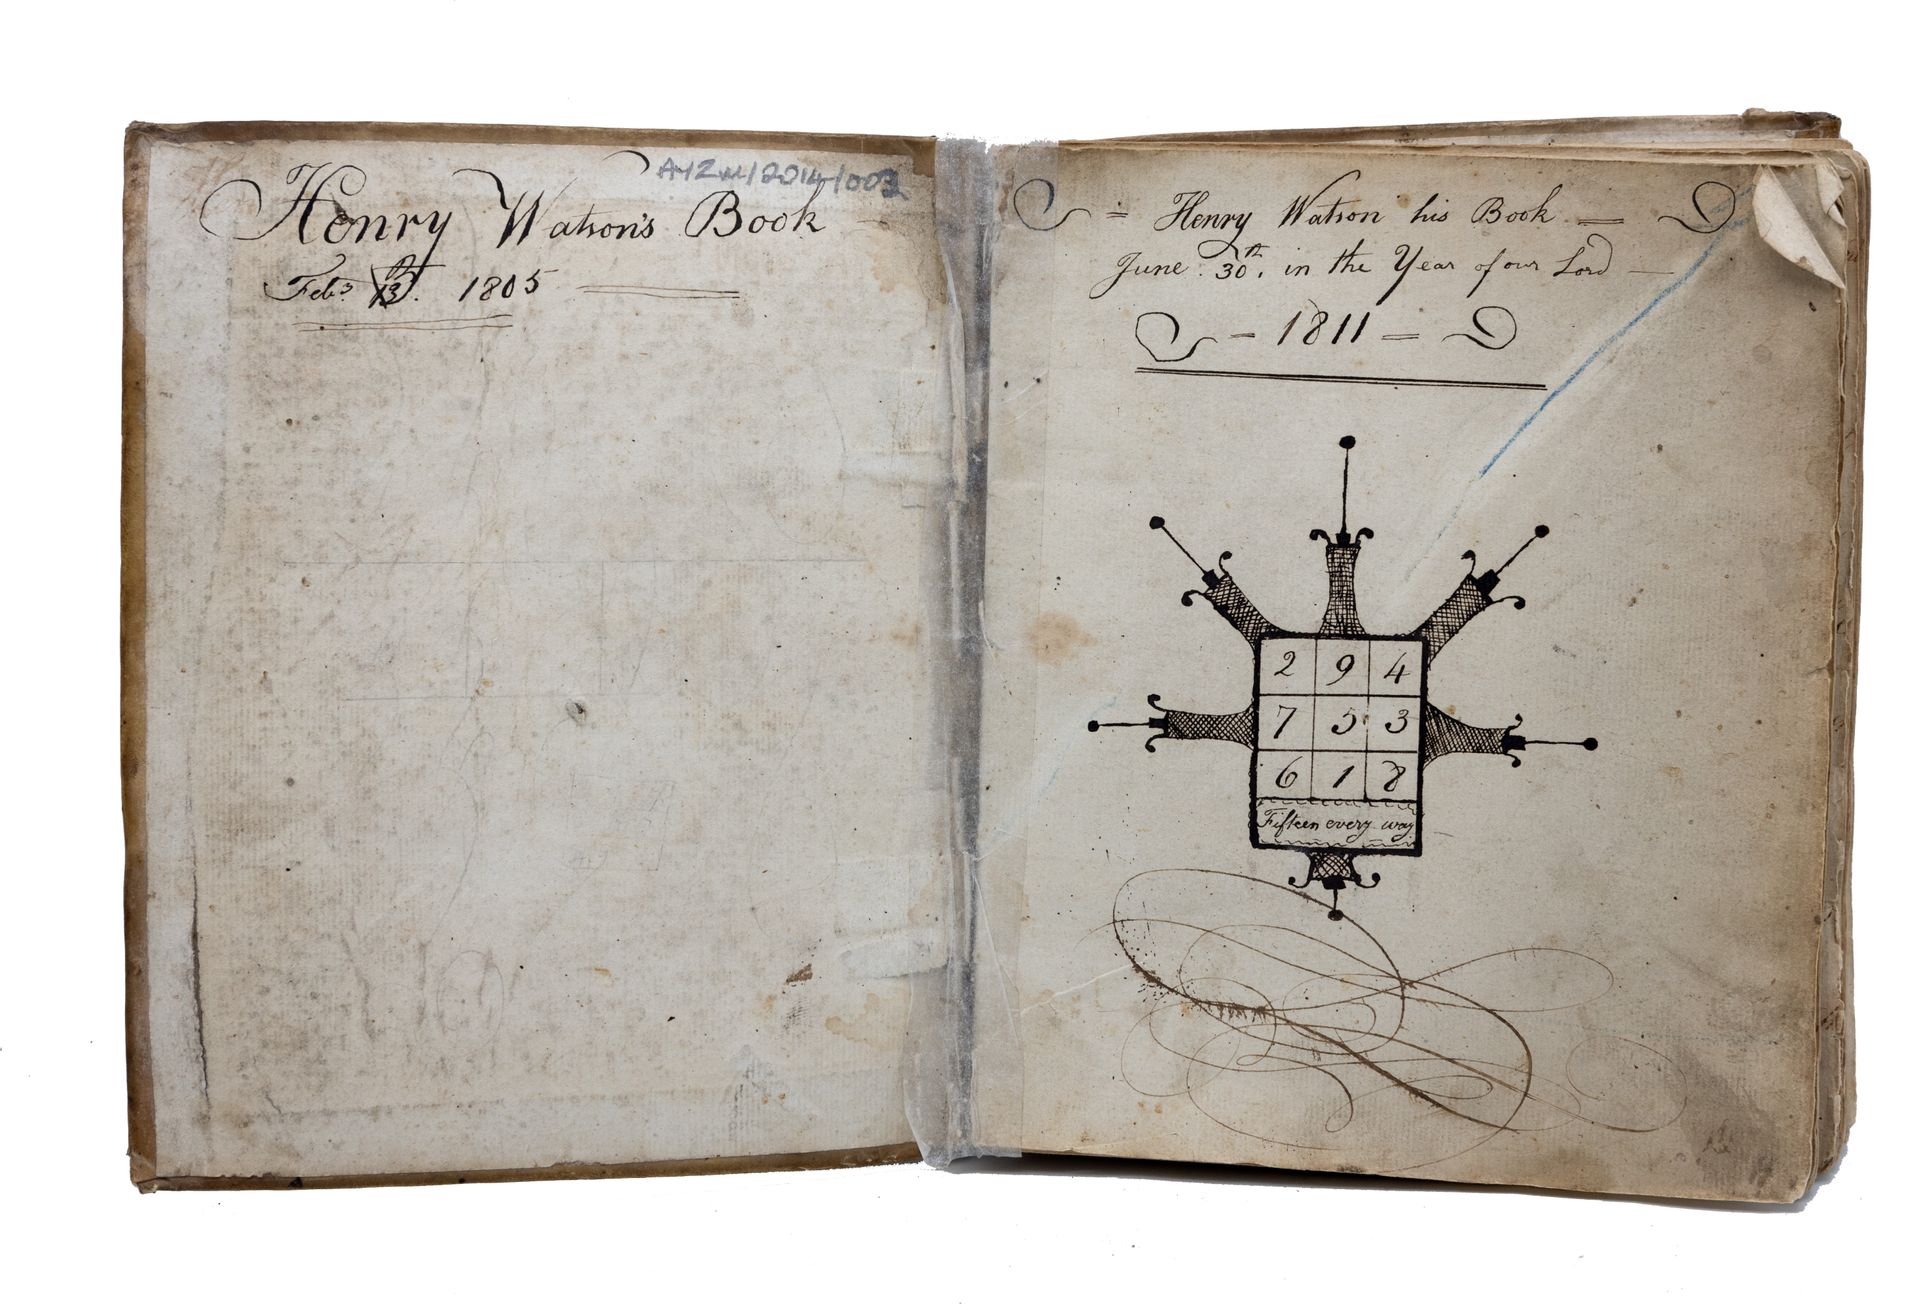 AYZM/2014/003
Henry Watson's Book
Feby 13. 1805
Henry Watson his Book
June 30th. in the Year of our Lord
1811
2 9 4
7 5 3
6 1 8
Fifteen every way